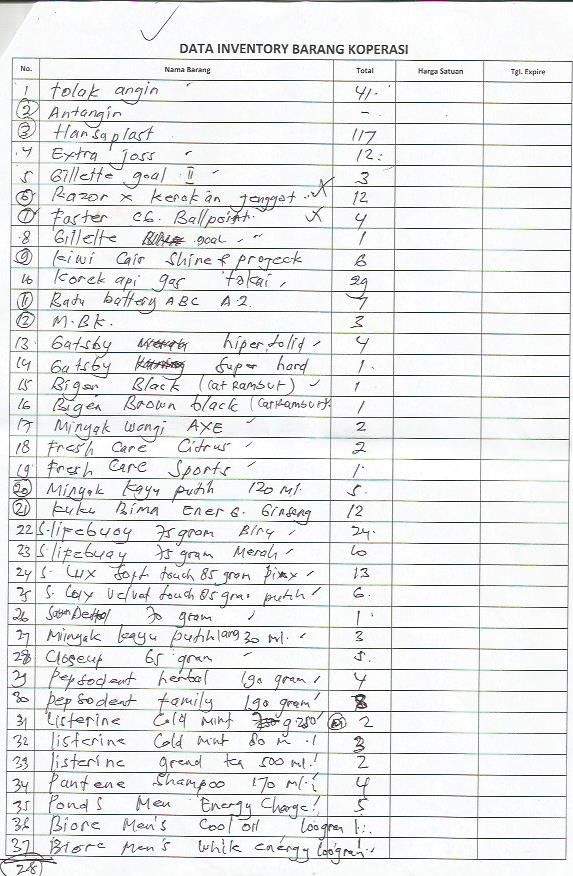 DATA INVENTORY BARANG KOPERASI
No. Nama Barang Total Harga Satuan Tgl. Expire
1 tolak angin 41.
2 Antangin -
3 Hansaplast 117
4 Extra joss 12
5 Gillette goal II 3
6 Razor x kerokan jenggot 12
7 Faster c6. Ballpoint 4
8 Gillette goal 1
9 kiwi Cair Shine & 6
10 korek api gas tokai 29
11 Batu battery ABC A2. 7
12 M.BK. 3
13 Gatsby hiper solid 4
14 Gatsby Super hard 1
15 Bigen Black (cat Rambut) 1
16 Bigen Brown black (cat Rambut). 1
17 Minyak wangi AXE 2
18 Fresh Care Citrus 2
19 Fresh Care Sports 1
20 Minyak kayu putih 120 ml. 5.
21 kuku Bima Ener G. Ginseng 12
22 S. lifebuoy 75 gram Biru 24.
23 S. lifebuoy 75 gram Merah 10
24 S. Lux Soft touch 85 gram 13
25 S. Lux Velvet touch 85 gram putih 6.
26 Sabun Dettol 70 gram 1
27 Minyak kayu putih lang 30 ml. 3
28 Closeup 65 gram 5.
29 pepsodent herbal 190 gram 4
30 pepsodent family 190 gram 8
31 Listerine Cold mint 250 2
32 listerine Cold mint 80 m 3
33 listerine grend tea 500 ml. 2
34 Pantene Shampoo 170 ml. 4
35 Ponds Men Energy Charge 5
36 Biore Men's Cool oil 100 gram 1
37 Biore Men's while energy 100 gram
28